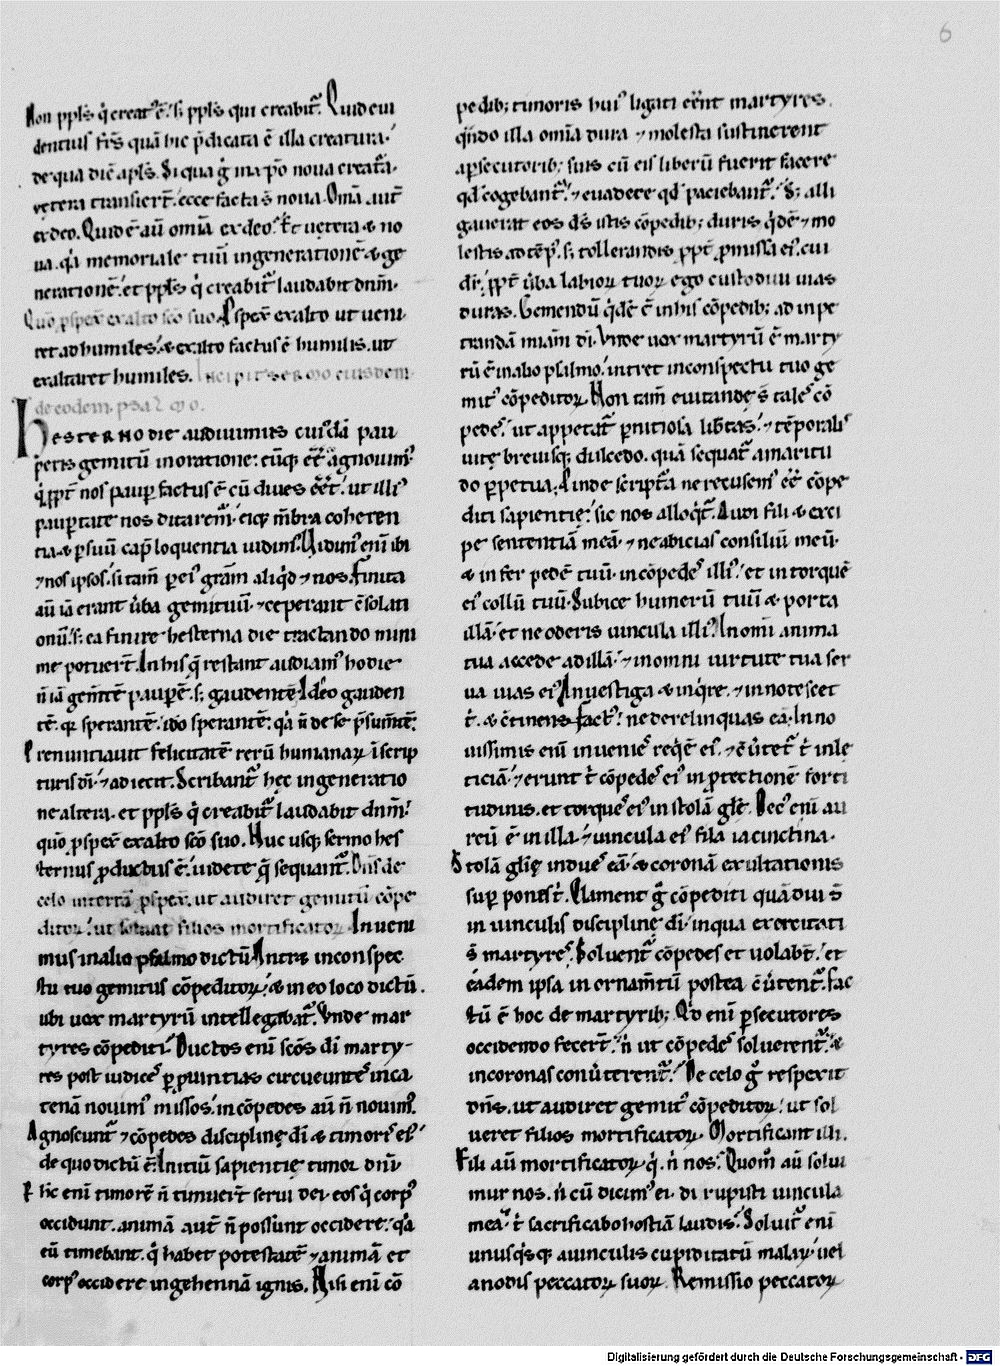 6
Non ppls q̇ creat᷑ ē. s; ppls qui creabit᷑. Quid eui
dentius frs̄ quā hic p̄dicata ē illa creatura.
de qua dic̄ apls̄. Si qua ḡ in xp̄o noua creat᷑a.
uetera transiert̄. ecce facta s̄ noua. Om̄a aut̄
ex deo. Quid ē aū om̄ia ex deo. Et uetera & no
ua. q̇a memoriale tuū in generationē & ge
nerationē. et ppls q̇ creabit᷑ laudabit dn̄m.
Quō pspex̄ exalto scō suo. Pspex̄ exalto ut ueni
ret ad humiles. & exalto factus ē humilis. ut
exaltaret humiles. Incipit sermo eiusdem
de eodem psalmo.
Hesterno die audiuimus cuiꝰdā pau
peris gemitū in oratione. eūq; eē agnouimꝰ.
q̇ ppt̄ nos paup factus ē cū diues eēt. ut illiꝰ
paup̄tate nos ditarem᷑. eiꝰq; m̄bra coheren
tia & ꝑ suū cap̄ loquentia uidimꝰ. Uidimꝰ enī ibi
⁊ nos ipsos. si tam̄ ꝑ eiꝰ grām aliq̇d ⁊ nos. Finita
aū iā erant ūba gemituū. ⁊ ceperant c̄solati
onū. s; ea finire hesterna die tractando mini
me potuert̄. In his q̄ restant audiamꝰ hodie
n̄ iā gem̄tē paup̄ē. s; gaudentē. Ideo gauden
tē. qr̄ sperantē. iđo sperantē. q̇a n̄ de se p̄sum̄tē.
Prenuntiauit felicitatē rerū humanaꝝ ī scrip
turis dī. ⁊ adiecit. Scribant᷑ hec in generatio
ne altera. et ppls̄ q̇ creabit᷑ laudabit dn̄m.
quō pspex̄ exalto scō suo. Huc usq; sermo hes
ternus ꝓductus ē. uidete q̄ sequant᷑. Dn̄s de
celo in terrā pspex̄. ut audiret gemitū cōpe
ditoꝝ. ut soluat filios mortificatoꝝ. In ueni
mus in alio psalmo dictū. Intret in conspec
tu tuo gemitus cōpeditoꝝ. & in eo loco dictū.
ubi uox martyrū intellegebat᷑. Vnde mar
tyres cōpediti. Ductos enī scōs dī marty-
res post iudiceꝰ ꝑ puintias circueuntēꝰ in ca
tenā nouimꝰ missos. in cōpedes aū n̄ nouimꝰ.
Agnoscunt᷑ ⁊ cōpedes discipline dī & timorē eiꝰ.
de quo dictū ē. Initiū sapientie timor dnī.
Hic enī timorē n̄ timuert̄ serui dei eos q̇ corpꝰ
occidunt. animā aut̄ n̄ possunt occidere. q̇a
eū timebant. q̇ habet potestatē ⁊ animā et
corpꝰ occidere in gehennā ignis. Nisi enī cō
pedib; timoris huiꝰ ligati eēnt martyres.
q̄ndo illa om̄ia dura ⁊ molesta sustinerent
a ꝑsecutorib; suis cū eis liberū fuerit facere
qd̄ cogebant᷑. ⁊ euadere qd̄ paciebant᷑. S; alli
gauerat eos ds̄ istis cōpedib; duris q̇dē ⁊ mo
lestis ad tēpꝰ. s; tollerandis ppt̄ ꝓmissa eiꝰ. cui
dr̄. ppt̄ ūba labioꝝ tuoꝝ ego custodiui uias
duras. Gemendū q̇dē ē in his cōpedib; ad inpe
trandā miam̄ dī. Vnde uox martyrū ē marty
rū ē in alio psalmo. intret in conspectu tuo ge
mitꝰ cōpeditoꝝ. Non tam̄ euitande s̄ taleꝰ cō
pedeꝰ. ut appetat᷑ ꝑnitiosa lib̄tas. ⁊ tēporaliꝰ
uite breuisq; dulcedo. quā sequat᷑ amaritu
do ꝑpetua. Vnde script᷑a ne recusemꝰ eē cōpe
diti sapientie. sic nos alloq̇t᷑. Audi fili & exci
pe sententiā meā. ⁊ ne abicias consiliū meū.
& infer pedē tuū. in cōpedeꝰ illiꝰ. et in torquē
eiꝰ collū tuū. Subice humerū tuū & porta
illā. et ne oderis uincula illiꝰ. In omī anima
tua accede ad illā. ⁊ in omni uirtute tua ser
ua uias eiꝰ. Inuestiga & inq̇re. ⁊ innotescet
t̄. & c̄tinens factꝰ. ne derelinquas eā. In no
uissimis enī inuenieꝰ req̇ē eiꝰ. ⁊ c̄ūtet᷑ t̄ in le
ticiā. ⁊ erunt t̄ cōpedeꝰ eiꝰ in ꝓtectionē forti
tudinis. et torqueꝰ eiꝰ in stolā glē. Decꝰ enī au
reū ē in illa. ⁊ uincula eiꝰ fila iacinctina.
Stolā glie indueꝰ eā. & coronā exultationis
suꝑ ponis t̄. Clament ḡ cōpediti quā diu s̄
in uinculis discipline dī. in qua exercitati
s̄ martyreꝰ. Soluent᷑ cōpedes et uolab̄t. et
eadem ipsa in ornam̄tū postea c̄ūtent᷑. Fac
tū ē hoc de martyrib; Qd̄ enī ꝑsecutores
occidendo fecert̄. n̄ ut cōpedeꝰ soluerent᷑. &
in coronas conūterent᷑. De celo ḡ respexit
dn̄s. ut audiret gemitꝰ cōpeditoꝝ. ut sol
ueret filios mortificatoꝝ. Mortificant illi.
Fili aū mortificatoꝝ q̇. n̄ nos. Quom̄ aū solui
mur nos. n̄ cū dicimꝰ ei. dirupisti uincula
mea. t̄ sacrificabo hostiā laudis. Soluit᷑ enī
unusq̇sq; a uinculis cupiditatū malaꝝ. uel
a nodis peccatoꝝ suoꝝ. Remissio peccatoꝝ
Digitalisierung gefördert durch die Deutsche Forschungsgemeinschaft - DFG